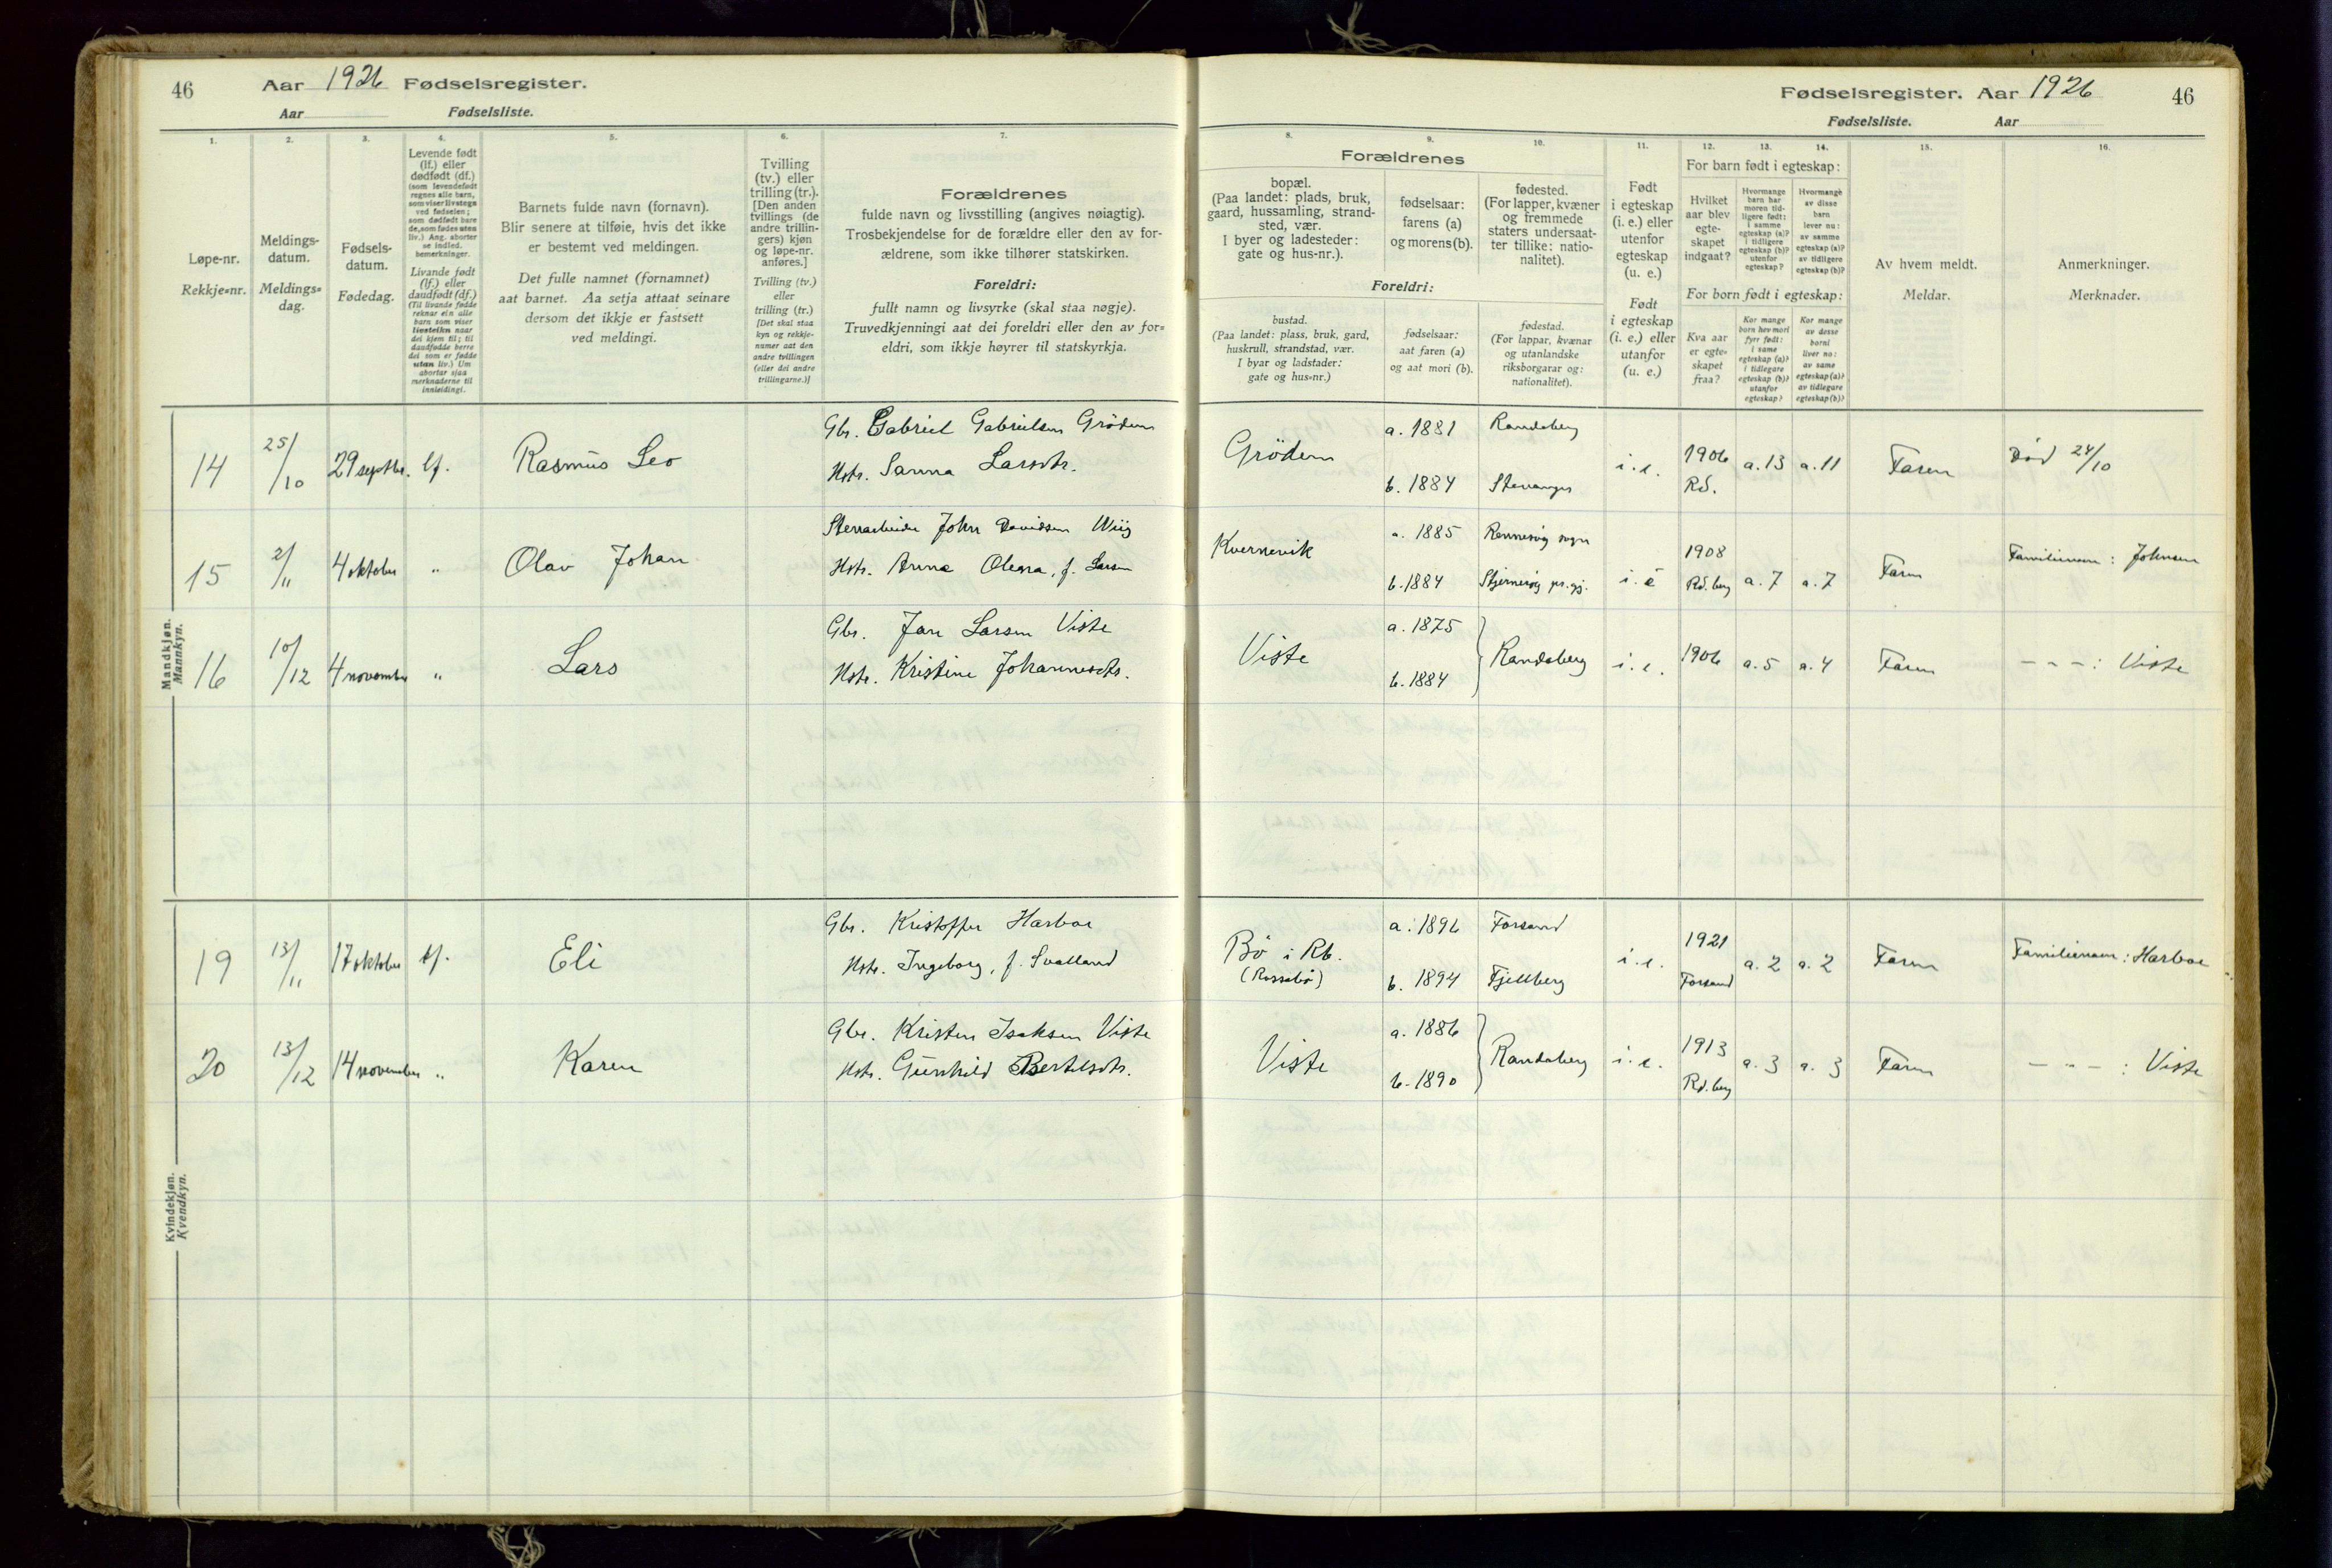 46 Aar 1926 Fødselsregister.
Aar Fødselsliste.
Fødselsregister. Aar 1926 46
Fødselsliste. Aar
1.
Løpe-nr.
Rekkje=nr.
2.
Meldings-
datum.
Meldings=
dag.
3.
Fødsels-
datum.
Fødedag.
4.
Levende født
(lf.) eller
dødfødt (df.)
(som levendefødt
regnes alle barn,
som viser livstegn
ved fødselen;
som dødfødt bare
de, som fødes uten
liv.) Ang. aborter
se indled.
bemerkninger.
Livande født
(lf.) eller
daudfødt (df.)
(Til livande fødde
reknar ein alle
barn som viser
livsteikn naar
dei kjem til; til
daudfødde berre
dei som er fødde
utan liv.) Um
abortar sjaa
merknaderne til
innleidingi.
5.
Barnets fulde navn (fornavn).
Blir senere at tilføie, hvis det ikke
er bestemt ved meldingen.
Det fulle namnet (fornamnet)
aat barnet. Aa setja attaat seinare
dersom det ikkje er fastsett
ved meldingi.
6.
Tvilling
(tv.) eller
trilling (tr.).
[Den anden
tvillings (de
andre trillin-
gers) kjøn
og løpe-nr.
anføres.]
Tvilling (tv.)
eller
trilling (tr.)
[Det skal staa
kyn og rekkje-
numer aat den
andre tvillingen
(eller dei andre
trillingarne.)]
7.
Forældrenes
fulde navn og livsstilling (angives nøiagtig).
Trosbekjendelse for de forældre eller den av for-
ældrene, som ikke tilhører statskirken.
Foreldri:
fullt namn og livsyrke (skal staa nøgje).
Truvedkjenningi aat dei foreldri eller den av for=
eldri, som ikkje høyrer til statskyrkja.
Forældrenes
8.
bopæl.
(Paa landet: plads, bruk,
gaard, hussamling, strand-
sted, vær.
I byer og ladesteder:
gate og hus-nr.).
9.
fødselsaar:
farens (a)
og morens (b).
10.
fødested.
(For lapper, kvæner
og fremmede
staters undersaat-
ter tillike: natio-
nalitet).
Foreldri:
bustad.
(Paa landet: plass, bruk, gard,
huskrull, strandstad, vær.
I byar og ladstader:
gate og hus=nr.)
fødselsaar:
aat faren (a)
og aat mori (b).
fødestad.
(For lappar, kvænar
og utanlandske
riksborgarar og:
nationalitet).
11.
Født
i egteskap
(i. e.) eller
utenfor
egteskap
(u. e.)
Født
i egteskap
(i. e.) eller
utanfor
egteskap
(u. e.)
12. 13. 14.
For barn født i egteskap:
Hvilket
aar blev
egte-
skapet
indgaat?
Hvormange
barn har
moren tid-
ligere født:
i samme
egteskap (a)?
i tidligere
egteskap (b)?
utenfor
egteskap?
Hvormange
av disse
barn
lever nu:
av samme
egteskap (a)?
av tidligere
egteskap (b)?
For born født i egteskap:
Kva aar
er egte-
skapet
fraa?
Kor mange
born hev mori
fyrr født:
i same
egteskap (a)?
i tidlegare
egteskap (b)?
utanfor
egteskap?
Kor mange
av desse
borni
liver no:
av same
egteskap (a)?
av tidlegare
egteskap (b)?
15.
Av hvem meldt.
Meldar.
16.
Anmerkninger.
Merknader.
Mandkjøn.
Mannkyn.
14 25/10 29 septbr. lf. Rasmus Leo
Gbr. Gabriel Gabrielsen Grödem
Hstr. Sanna Larsdtr.
Grödem
a. 1881 Randaberg
b. 1884 Stavanger
i. e. 1906 Rd. a. 13 a. 11 Faren Död 24/10
15 2/11 4 oktober " Olav Johan
Stenarbeider John Davidsen Wiig
Hstr. Anna Olena, f. Larsen
Kvernevik
a. 1885 Rennesöy sogn
b. 1884 Stjernerøy pr.gj.
i. e 1908 Rd.berg a. 7 a. 7 Faren Familienavn: Johnsen
16 10/12 4 november " Lars
Gbr. Jan Larsen Viste
Hstr. Kristine Johannesdtr.
Viste
a. 1875
b. 1884 Randaberg
i. e. 1906 a. 5 a. 4 Faren — " — : Viste
Kvindekjøn.
Kvendkyn.
19 13/11 17 oktober lf. Eli
Gbr. Kristoffer Harboe
Hstr. Ingeborg, f. Svalland
Bö i Rb.
(Rossebö)
a. 1896 Forsand
b. 1894 Fjellberg
i. e. 1921 Forsand a. 2 a. 2 Faren Familienavn: Harboe
20 13/12 14 november " Karen
Gbr. Kristen Isaksen Viste
Hstr. Gunhild Bertelsdtr.
Viste
a. 1886
b. 1890 Randaberg
i. e. 1913 Rd.berg a. 3 a. 3 Faren — " — : Viste